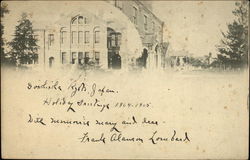 Doshisha Kyoto Japan.
Holiday Greetings 1904-1905
With memories many and dear
Frank Alanson Lombard